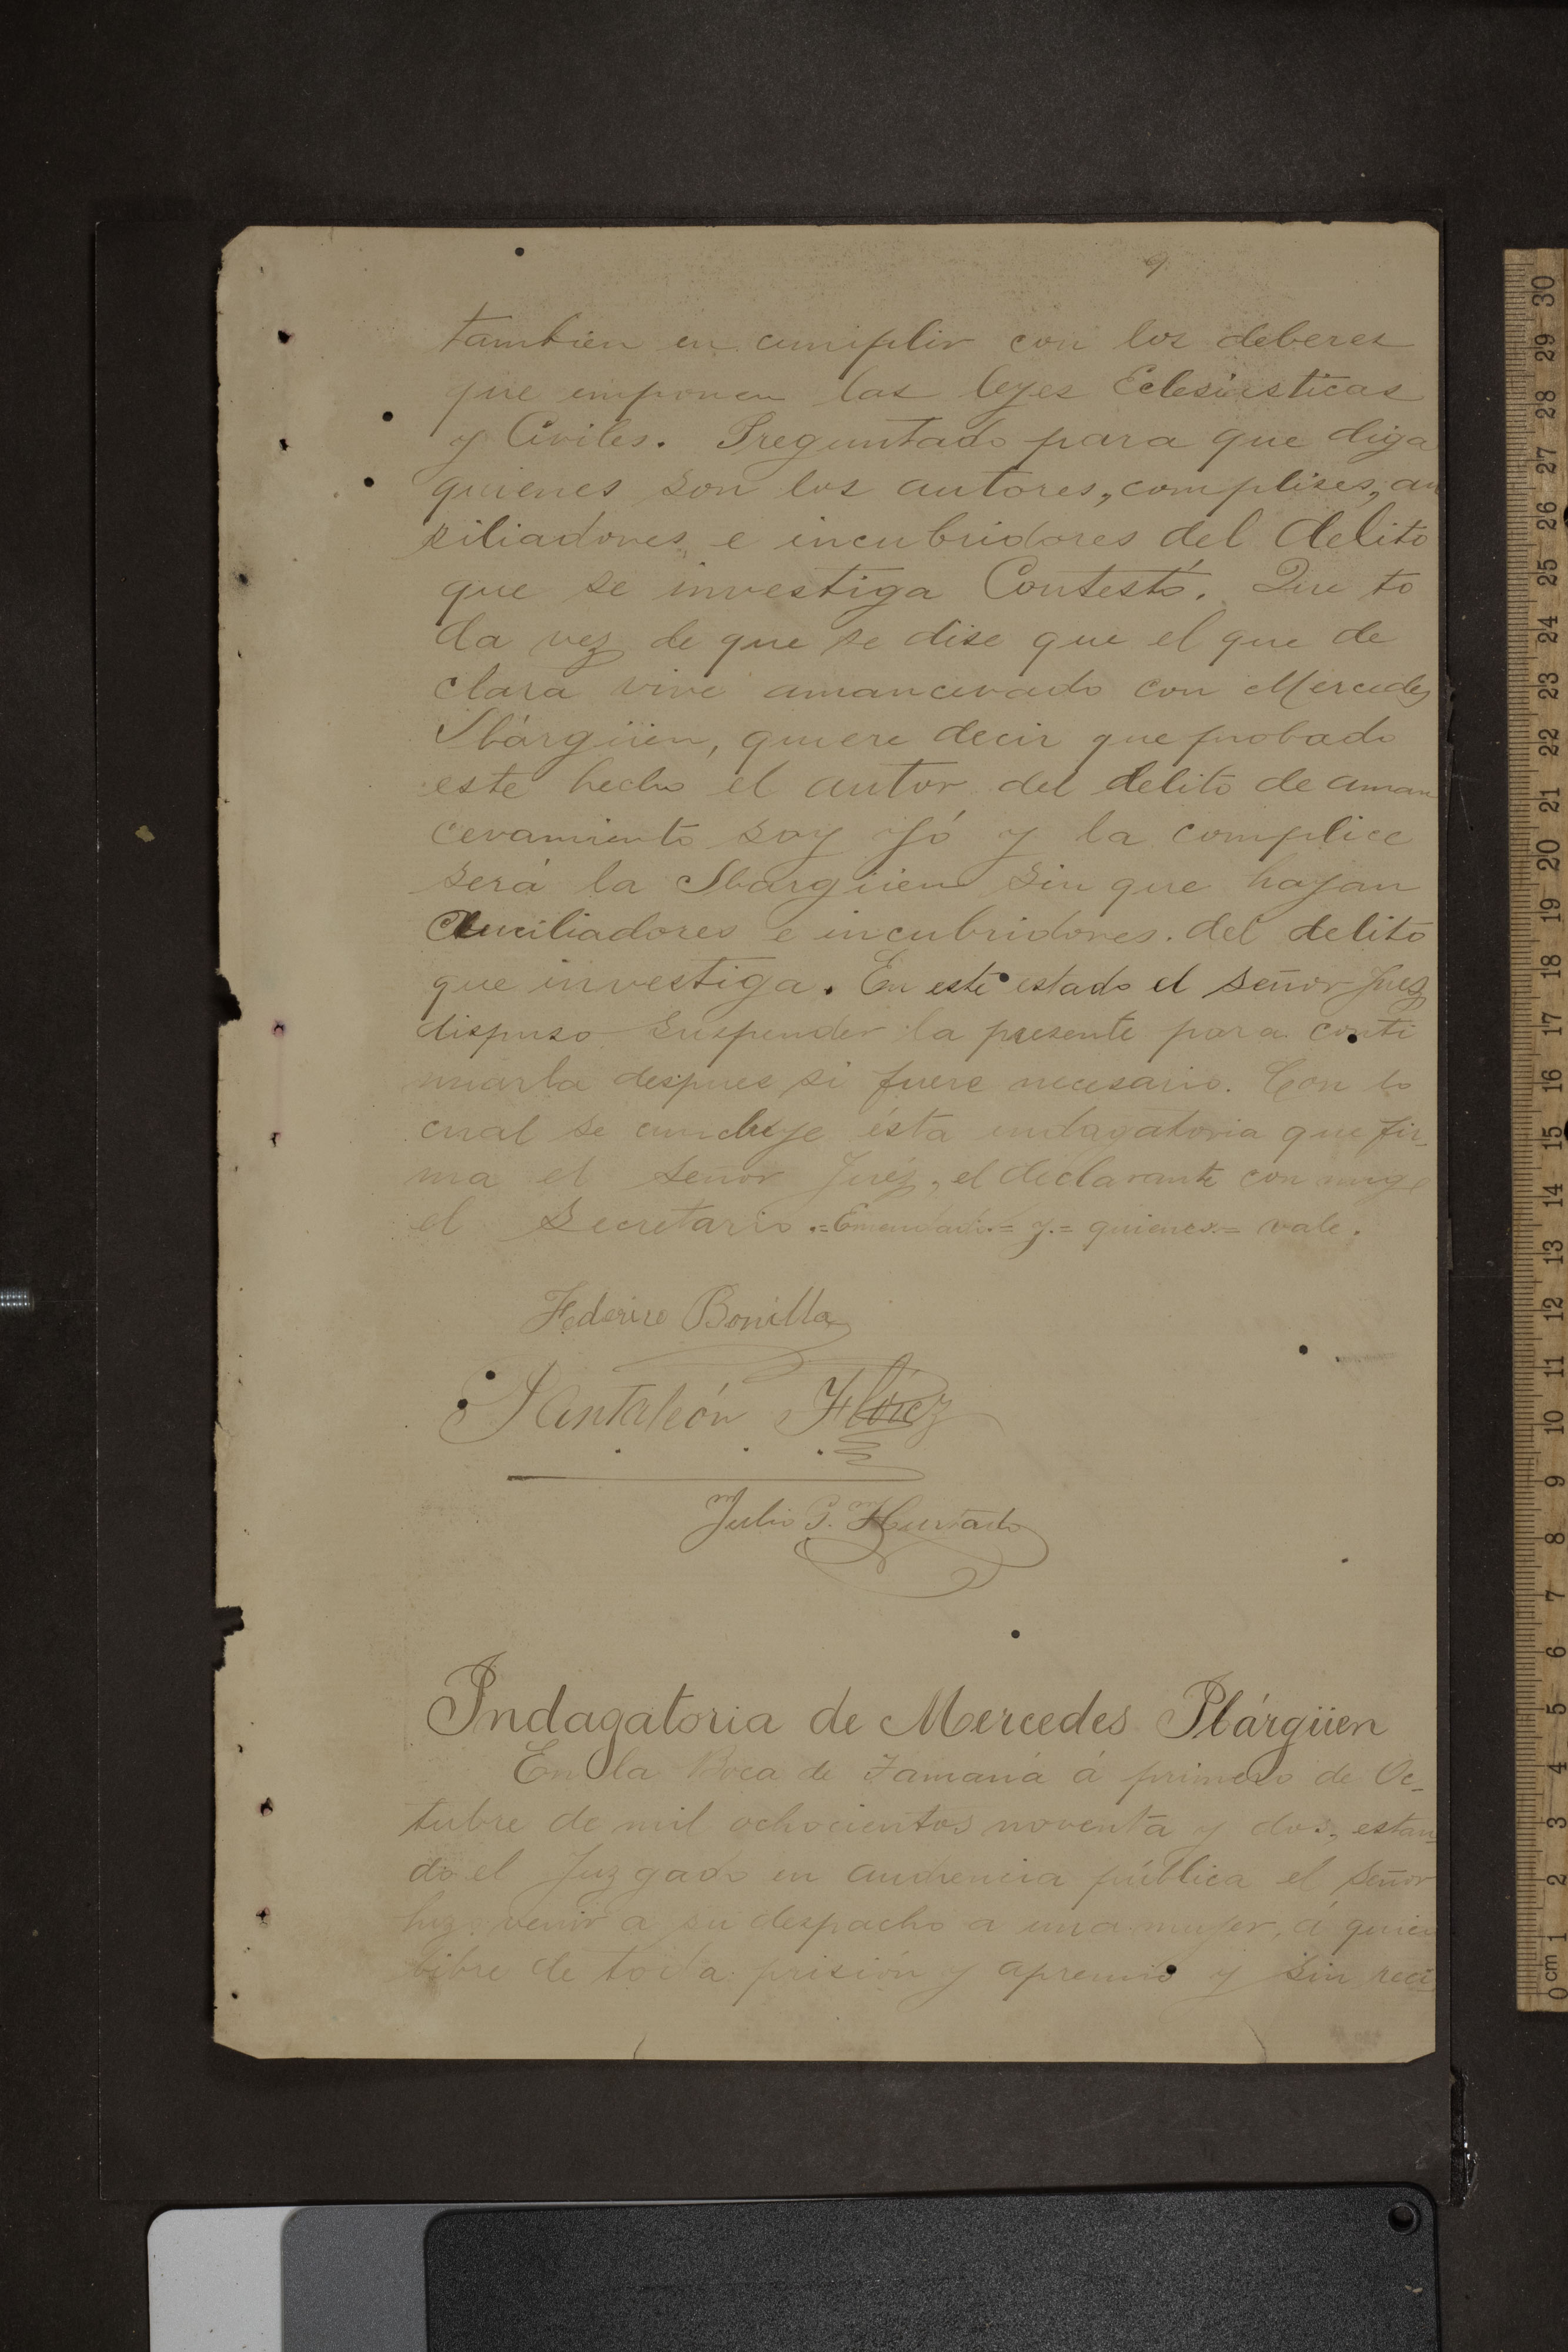 9
tambien en cumplir con los deberes
que imponen las leyes Eclesiasticas
y Civiles. Preguntado para que diga
quienes son los autores, complises, au
xiliadores, e incubridores del delito
que se investiga Contestó. Que to
da vez de que se dise que el que de
clara vive amancevado con Mercedes
Ibárgüen, quiere decir que probado
este hecho el autor del delito de aman
cevamiento soy Yó y la complice
será la Ibargüen sin que hayan
Auciliadores e incubridores. del delito
que investiga. En este estado el señor Juez
dispuso suspender la presente para conti
nuarla despues si fuere necesario. Con lo
cual se concluye ésta indagatoria que fir-
ma el señor Juéz, el declarante con migo
el Secretario.=Emendado.= y.= quienes.= vale.
Federico Bonilla
Pantaleón Flórez
Julio P. Hurtado
Indagatoria de Mercedes Ibárgüen
En la Boca de Tamaná á primero de Oc-
tubre de mil ochocientos noventa y dos, estan
do el Juzgado en audiencia pública el señor
hizo venir a su despacho a una mujer, á quien
libre de toda prisión y apremio y sin reci
0 cm 1 2 3 4 5 6 7 8 9 10 11 12 13 14 15 16 17 18 19 20 21 22 23 24 25 26 27 28 29 30